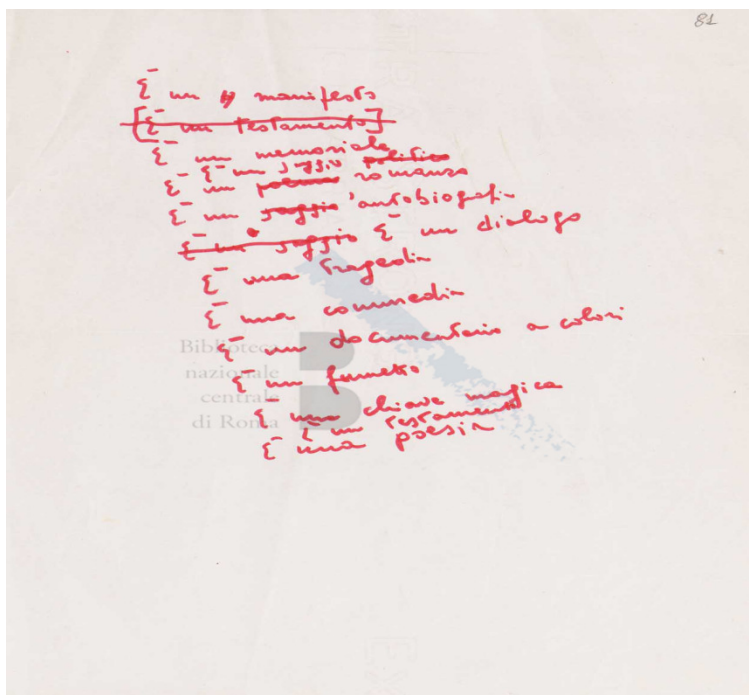 81
È un manifesto
[È un testamento]
È un memoriale
È un saggio politico
È un poema romanzo
È un saggio autobiografia
È un saggio È un dialogo
È una tragedia
È una commedia
È un documentario a colori
È un fumetto
È una chiave magica
È un testamento
È una poesia
Biblioteca
nazionale
centrale
di Roma